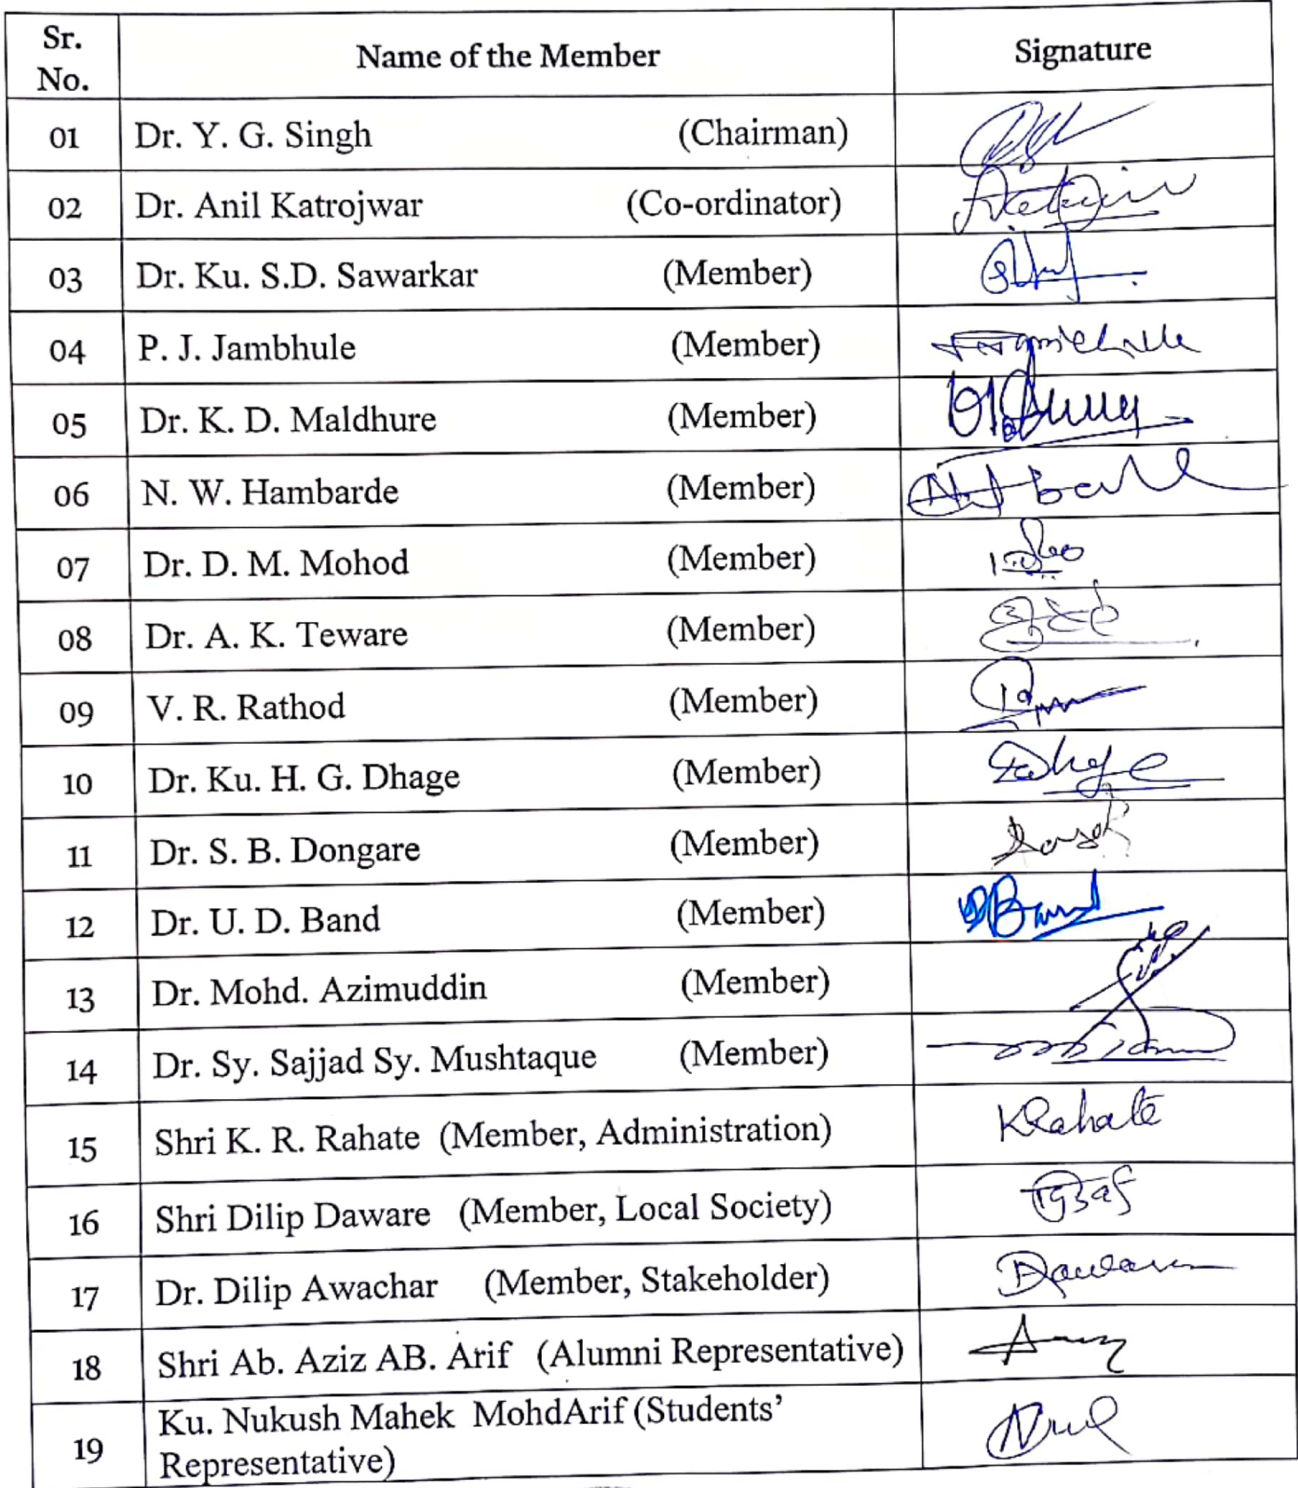 Sr. No. Name of the Member Signature
01 Dr. Y. G. Singh (Chairman)
02 Dr. Anil Katrojwar (Co-ordinator)
03 Dr. Ku. S.D. Sawarkar (Member)
04 P. J. Jambhule (Member)
05 Dr. K. D. Maldhure (Member)
06 N. W. Hambarde (Member)
07 Dr. D. M. Mohod (Member)
08 Dr. A. K. Teware (Member)
09 V. R. Rathod (Member)
10 Dr. Ku. H. G. Dhage (Member)
11 Dr. S. B. Dongare (Member)
12 Dr. U. D. Band (Member)
13 Dr. Mohd. Azimuddin (Member)
14 Dr. Sy. Sajjad Sy. Mushtaque (Member)
15 Shri K. R. Rahate (Member, Administration) KRahate
16 Shri Dilip Daware (Member, Local Society)
17 Dr. Dilip Awachar (Member, Stakeholder)
18 Shri Ab. Aziz AB. Arif (Alumni Representative)
19 Ku. Nukush Mahek MohdArif (Students'
Representative)